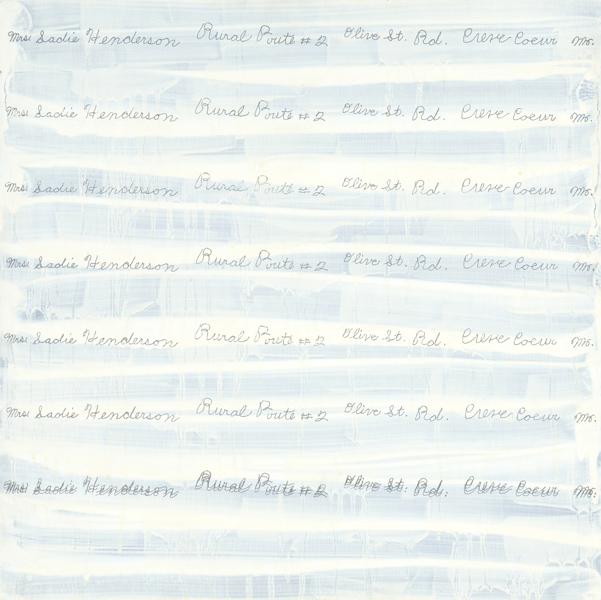 Mrs. Sadie Henderson Rural Route #2 Olive St. Rd. Creve Coeur Mo.
Mrs. Sadie Henderson Rural Route #2 Olive St. Rd. Creve Coeur Mo.
Mrs. Sadie Henderson Rural Route #2 Olive St. Rd. Creve Coeur Mo.
Mrs. Sadie Henderson Rural Route #2 Olive St. Rd. Creve Coeur Mo.
Mrs. Sadie Henderson Rural Route #2 Olive St. Rd. Creve Coeur Mo.
Mrs. Sadie Henderson Rural Route #2 Olive St. Rd. Creve Coeur Mo.
Mrs. Sadie Henderson Rural Route #2 Olive St. Rd. Creve Coeur Mo.